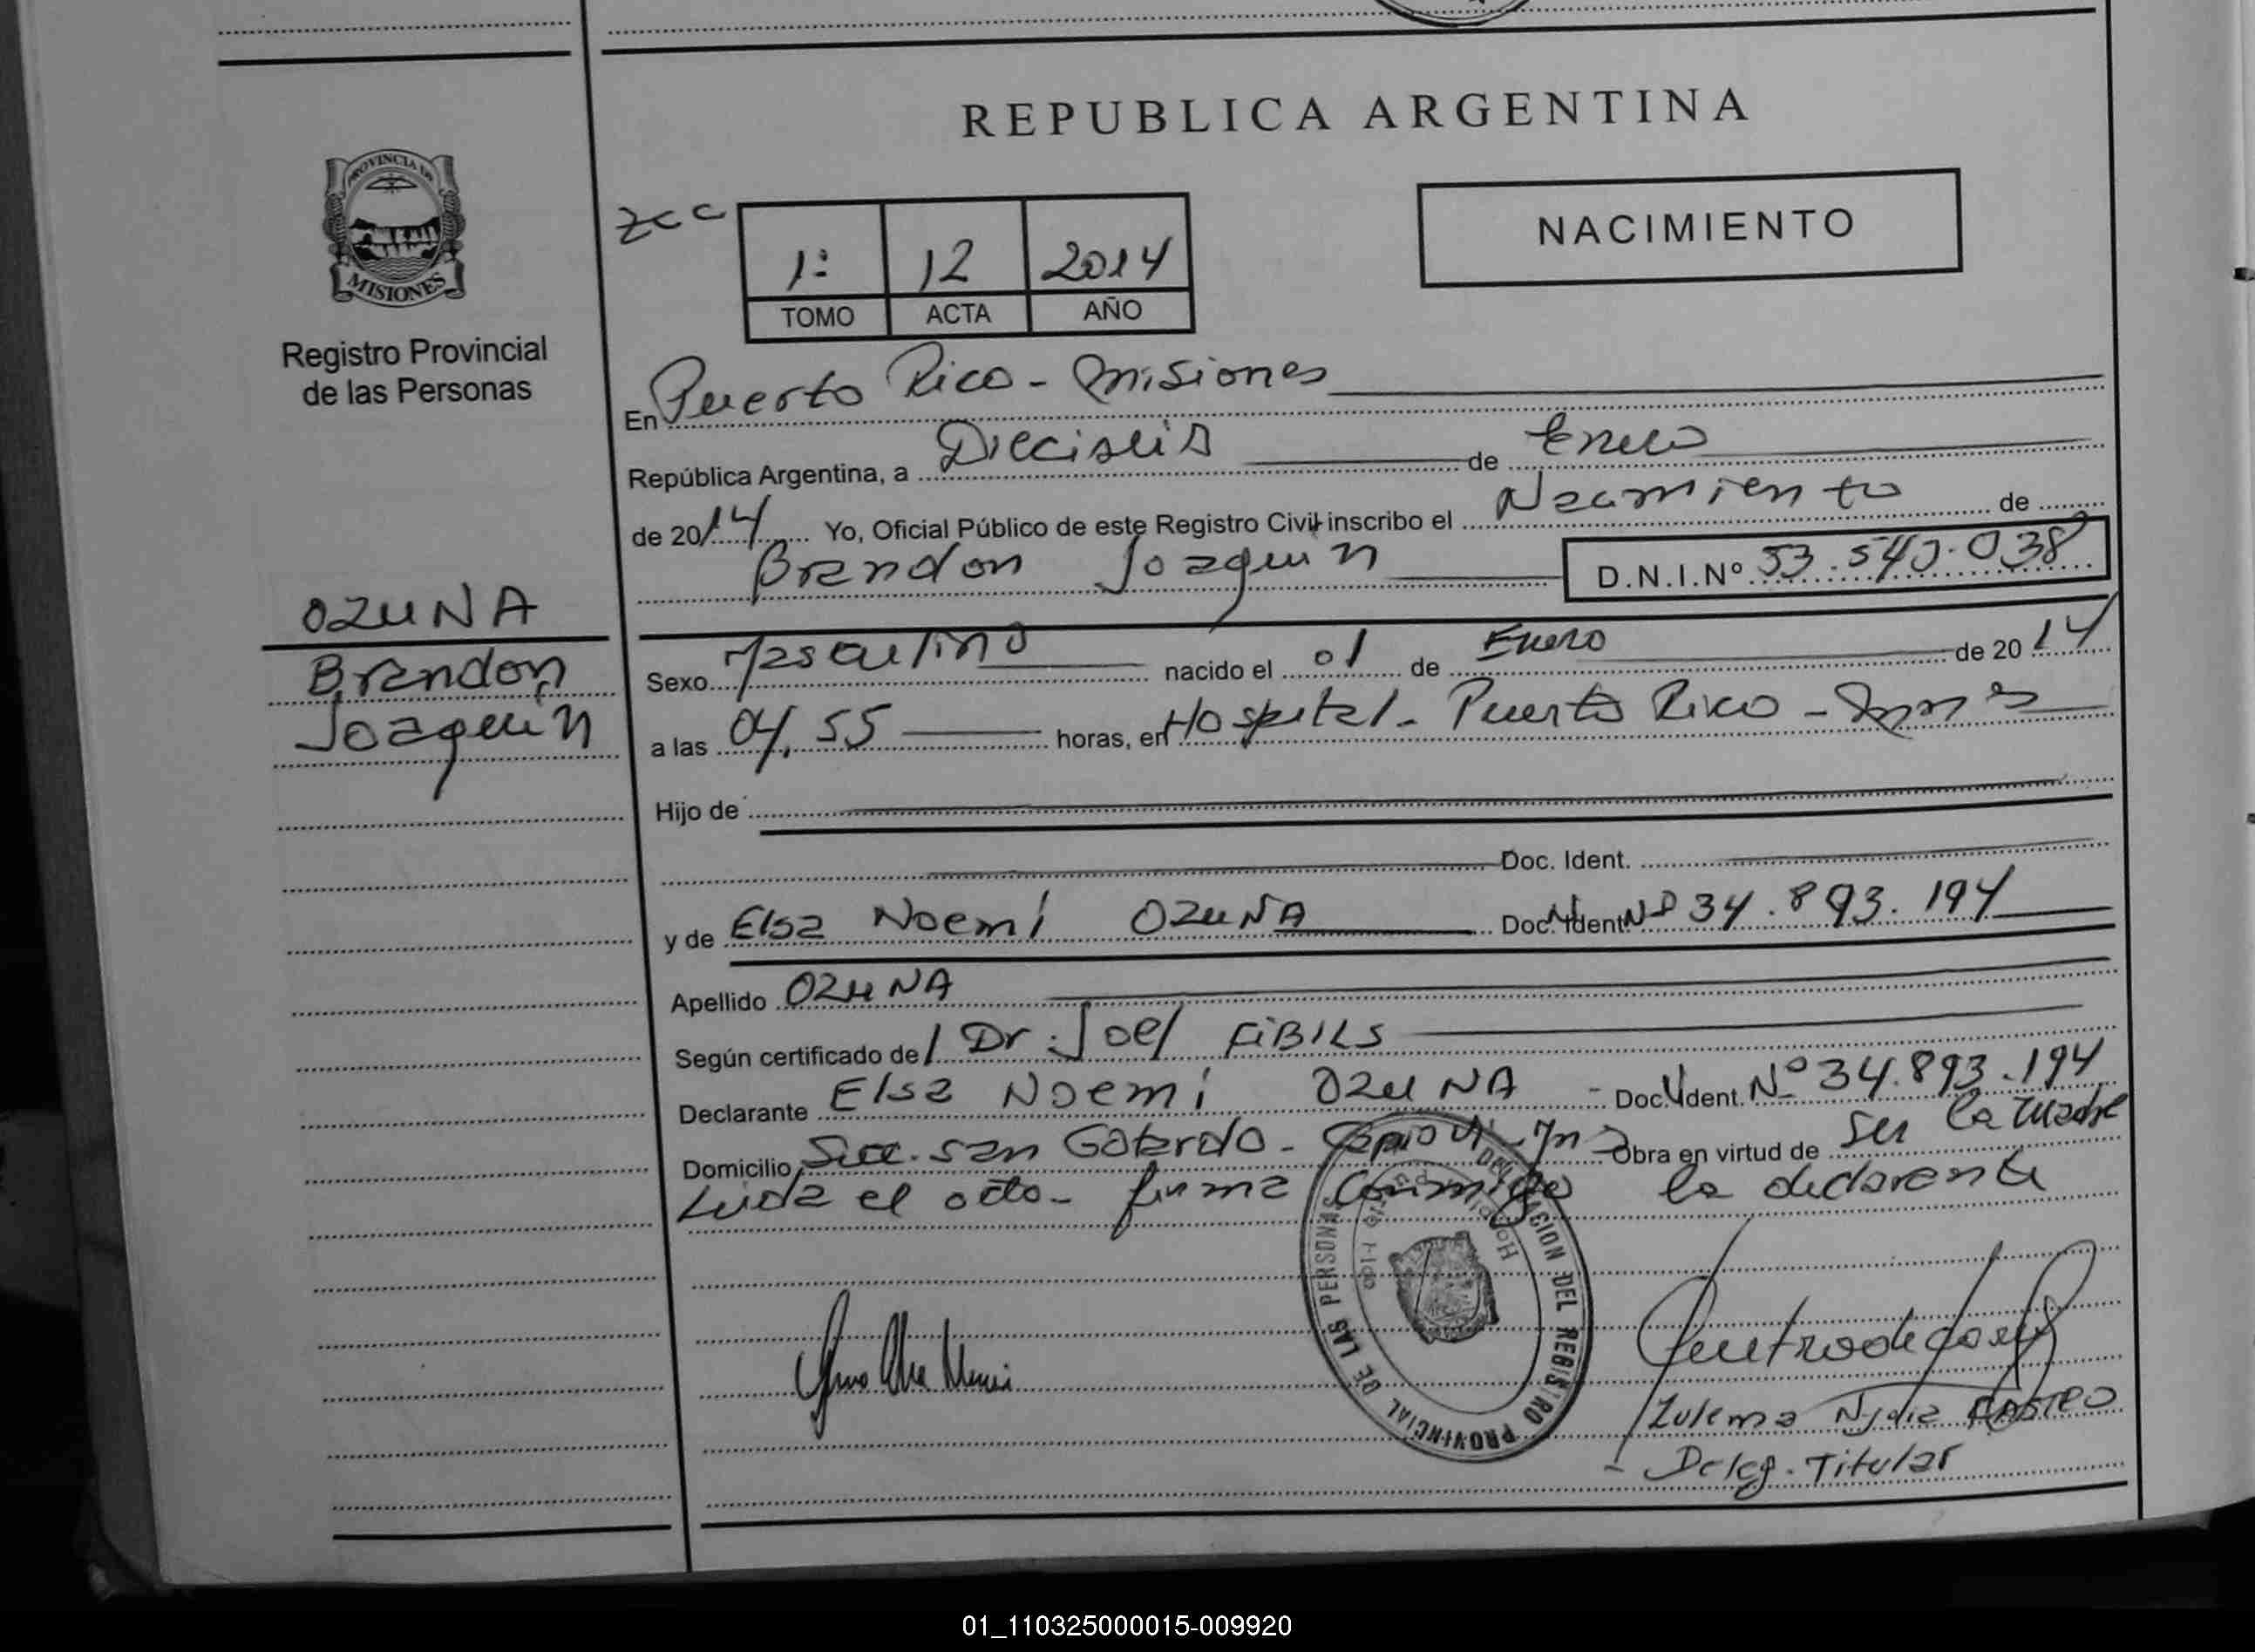 REPUBLICA ARGENTINA
PROVINCIA DE
MISIONES
Registro Provincial
de las Personas
OZUNA
Brandon
Joaquin
zcc
1: 12 2014
TOMO ACTA AÑO
NACIMIENTO
En Puerto Rico - Misiones
República Argentina, a Dieciseis de Enero
de 2014 Yo, Oficial Público de este Registro Civil inscribo el Nacimiento de
Brandon Joaquin D.N.I.Nº 53.540.038
Sexo Masculino nacido el 01 de Enero de 2014
a las 04,55 horas, en Hospital - Puerto Rico - Mnes
Hijo de
Doc. Ident.
y de Elsa Noemí OZUNA Doc. Ident. Nº 34.893.194
Apellido OZUNA
Según certificado de Dr. Joel FIBILS
Declarante Elsa Noemí OZUNA - Doc. Ident. Nº 34.893.194
Domicilio San Gotardo - Capioví - Mnes Obra en virtud de Ser la madre
Leida el acta - firma conmigo la declarante
DELEGACION DEL REGISTRO PROVINCIAL DE LAS PERSONAS
Zulema Nydia CASTRO
- Deleg. Titular
01_110325000015-009920